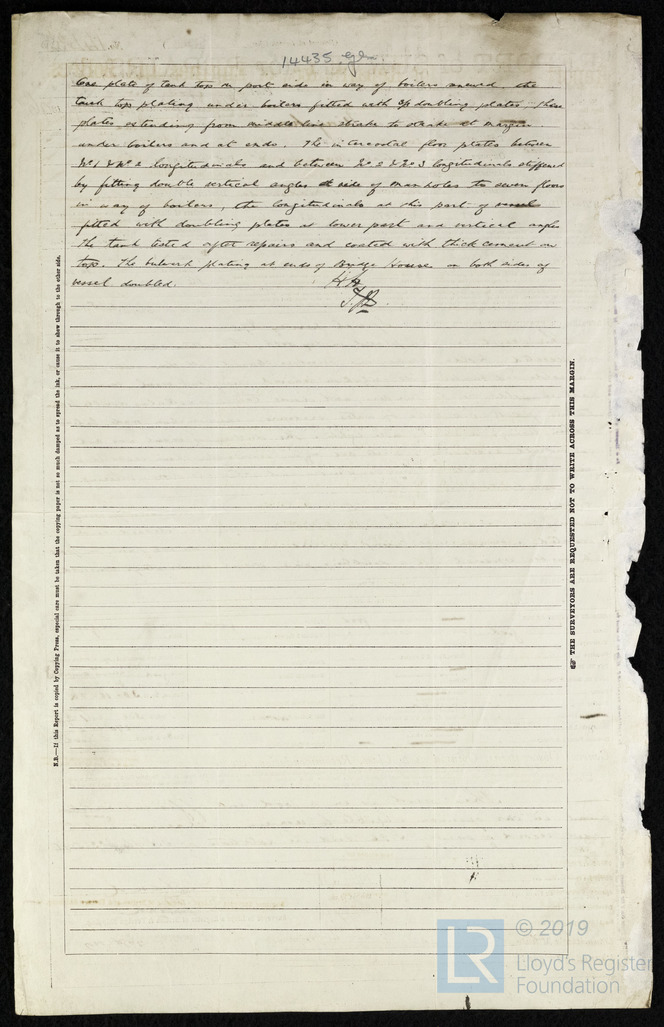 14435 Gls.
One plate of tank top on port side in way of boilers renewed, the
tank top plating under boilers fitted with doubling plates these
plates extending from middle line strake to strake at margin
under boilers and at ends. The intercostal floor plates between
No 1 & No 2 longitudinals and between No 2 & No 3 longitudinals stiffened
by fitting double vertical angles at side of manholes to seven floors
in way of boilers, the longitudinals at this part of vessel
fitted with doubling plates at lower part and vertical angles
The tank tested after repairs and coated with thick cement on
top. The bulwark plating at ends of Bridge House on both sides of
vessel doubled.
N.B.—If this Report is copied by Copying Press, especial care must be taken that the copying paper is not so much damped as to spread the ink, or cause it to show through to the other side.
☞ THE SURVEYORS ARE REQUESTED NOT TO WRITE ACROSS THIS MARGIN.
LR
© 2019
Lloyd's Register
Foundation